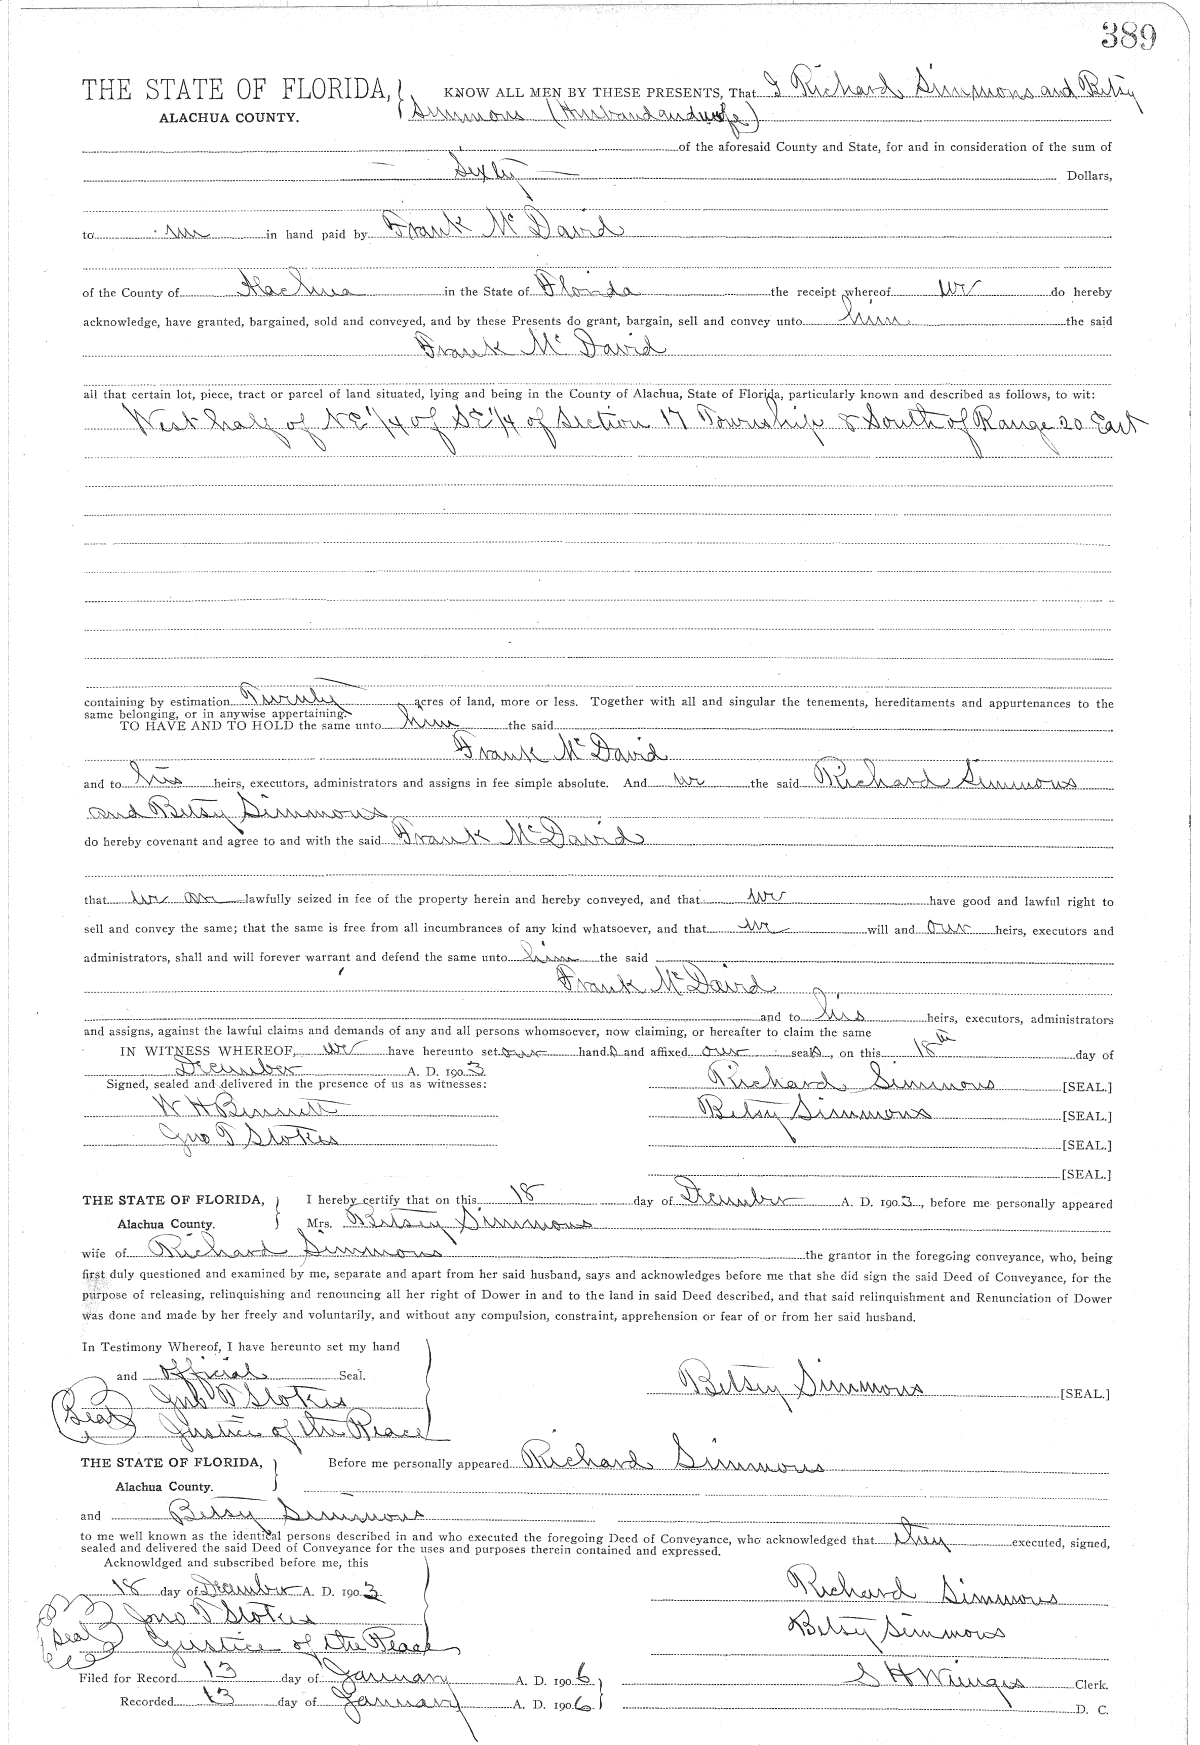 389
THE STATE OF FLORIDA, KNOW ALL MEN BY THESE PRESENTS, That I Richard Simmons and Betsy
ALACHUA COUNTY. Simmons (Husband and wife)
of the aforesaid County and State, for and in consideration of the sum of
Sixty Dollars,
to in hand paid by Frank McDavid
of the County of Alachua in the State of Florida the receipt whereof we do hereby
acknowledge, have granted, bargained, sold and conveyed, and by these Presents do grant, bargain, sell and convey unto him the said
Frank McDavid
all that certain lot, piece, tract or parcel of land situated, lying and being in the County of Alachua, State of Florida, particularly known and described as follows, to wit:
West half of NE 1/4 of SE 1/4 of Section 17 Township 8 South of Range 20 East
containing by estimation Twenty acres of land, more or less. Together with all and singular the tenements, hereditaments and appurtenances to the
same belonging, or in anywise appertaining.
TO HAVE AND TO HOLD the same unto him the said
Frank McDavid
and to his heirs, executors, administrators and assigns in fee simple absolute. And we the said Richard Simmons
and Betsy Simmons
do hereby covenant and agree to and with the said Frank McDavid
that we are lawfully seized in fee of the property herein and hereby conveyed, and that we have good and lawful right to
sell and convey the same; that the same is free from all incumbrances of any kind whatsoever, and that we will and our heirs, executors and
administrators, shall and will forever warrant and defend the same unto him the said
Frank McDavid
and to his heirs, executors, administrators
and assigns, against the lawful claims and demands of any and all persons whomsoever, now claiming, or hereafter to claim the same
IN WITNESS WHEREOF, we have hereunto set our hands and affixed our seals, on this 18th day of
December A. D. 1903
Signed, sealed and delivered in the presence of us as witnesses: Richard Simmons [SEAL.]
W H Bennett Betsy Simmons [SEAL.]
Jno T Stokes [SEAL.]
[SEAL.]
THE STATE OF FLORIDA, I hereby certify that on this 18 day of December A. D. 1903, before me personally appeared
Alachua County. Mrs. Betsey Simmons
wife of Richard Simmons the grantor in the foregoing conveyance, who, being
first duly questioned and examined by me, separate and apart from her said husband, says and acknowledges before me that she did sign the said Deed of Conveyance, for the
purpose of releasing, relinquishing and renouncing all her right of Dower in and to the land in said Deed described, and that said relinquishment and Renunciation of Dower
was done and made by her freely and voluntarily, and without any compulsion, constraint, apprehension or fear of or from her said husband.
In Testimony Whereof, I have hereunto set my hand
and official Seal. Betsey Simmons [SEAL.]
Jno T Stokes
Seal Justice of the Peace
THE STATE OF FLORIDA, Before me personally appeared Richard Simmons
Alachua County.
and Betsy Simmons
to me well known as the identical persons described in and who executed the foregoing Deed of Conveyance, who acknowledged that they executed, signed,
sealed and delivered the said Deed of Conveyance for the uses and purposes therein contained and expressed.
Acknowldged and subscribed before me, this
18 day of December A. D. 1903 Richard Simmons
Jno T Stokes Betsy Simmons
Seal Justice of the Peace
Filed for Record 13 day of January A. D. 1906 S H Wienges Clerk.
Recorded 13 day of January A. D. 1906 D. C.